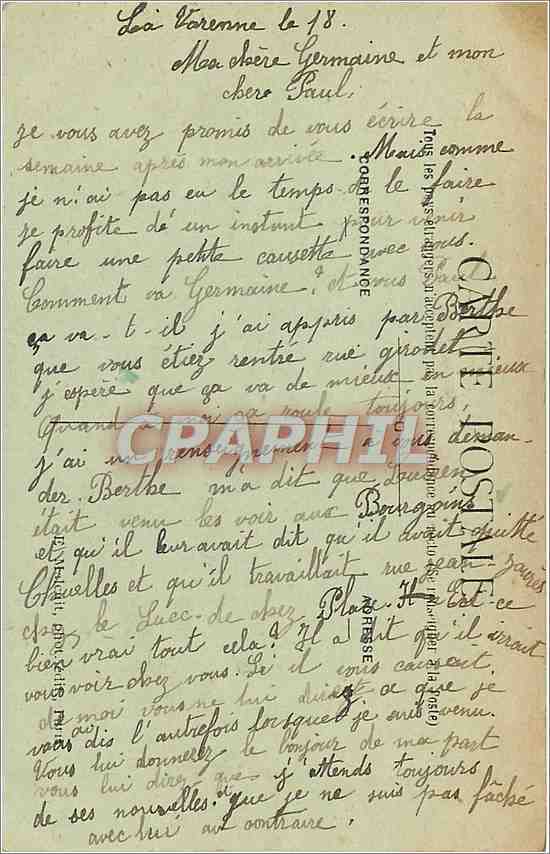 La Varenne le 18.
Ma chère Germaine et mon
chere Paul,
je vous avez promis de vous écrire la
semaine après mon arrivée. Mais comme
je n'ai pas eu le temps de le faire
je profite de un instant pour venir
faire une petite causette avec vous.
Comment va Germaine? et vous Paul
ça va-t-il j'ai appris par Berthe
que vous étiez rentré rue girodet
j'espère que ça va de mieux en mieux
Quand à moi ça roule toujours,
j'ai un renseignement a vous deman-
der. Berthe m'a dit que Lucien
était venu les voir aux Bourgoins
et qu'il leur avait dit qu'il avait quitté
Chuelles et qu'il travaillait rue Jean-Jaurès
chez le Succ. de chez Place. Est-ce
bien vrai tout cela? Il a dit qu'il irrait
vous voir chez vous. Si il vous causait
de moi vous ne lui direz ce que je
vous ai dis l'autrefois lorsque je suis venu.
Vous lui donnerez le bonjour de ma part
vous lui direz que j'attends toujours
de ses nouvelles. et que je ne suis pas fâché
avec lui au contraire.
CARTE POSTALE
Tous les pays étrangers n'acceptent pas la correspondance au recto (Se renseigner à la Poste)
CORRESPONDANCE
ADRESSE
CPAPHIL